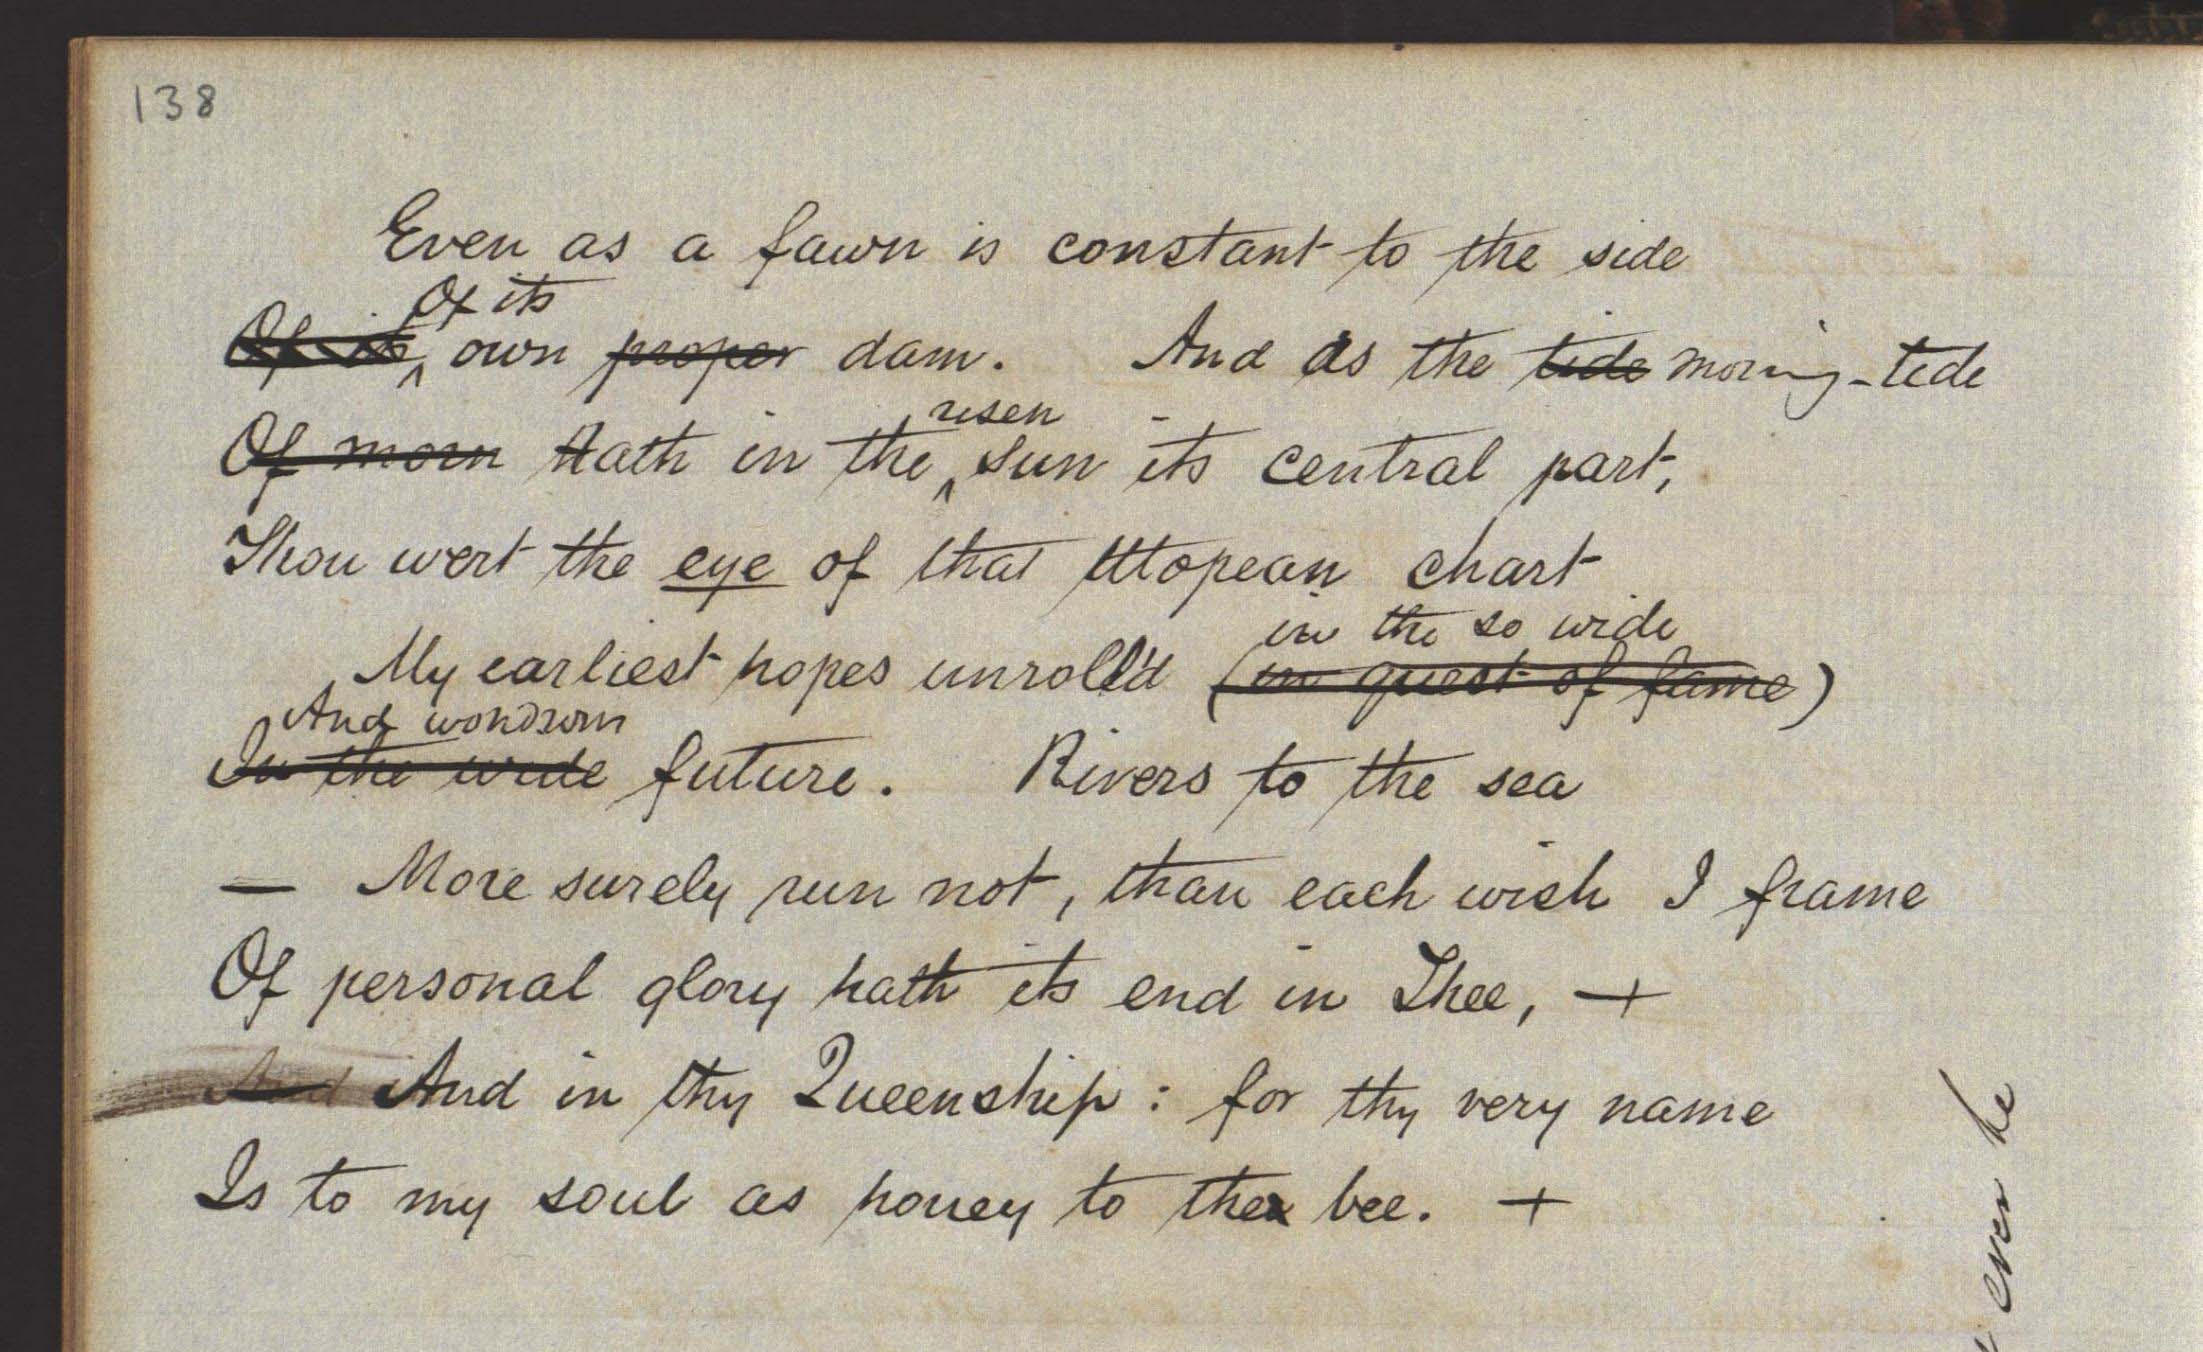 138
Even as a fawn is constant to the side
Of its
Of its own proper dam. And as the tide morning-tide
risen
Of morn Hath in the sun its central part,
Thou wert the eye of that Utopean chart
in the so wide
My earliest hopes unroll'd (in quest of fame)
And wondrous
In the wide future. Rivers to the sea
— More surely run not, than each wish I frame
Of personal glory hath its end in Thee, +
And And in thy Queenship : for thy very name
Is to my soul as honey to the bee. +
even he